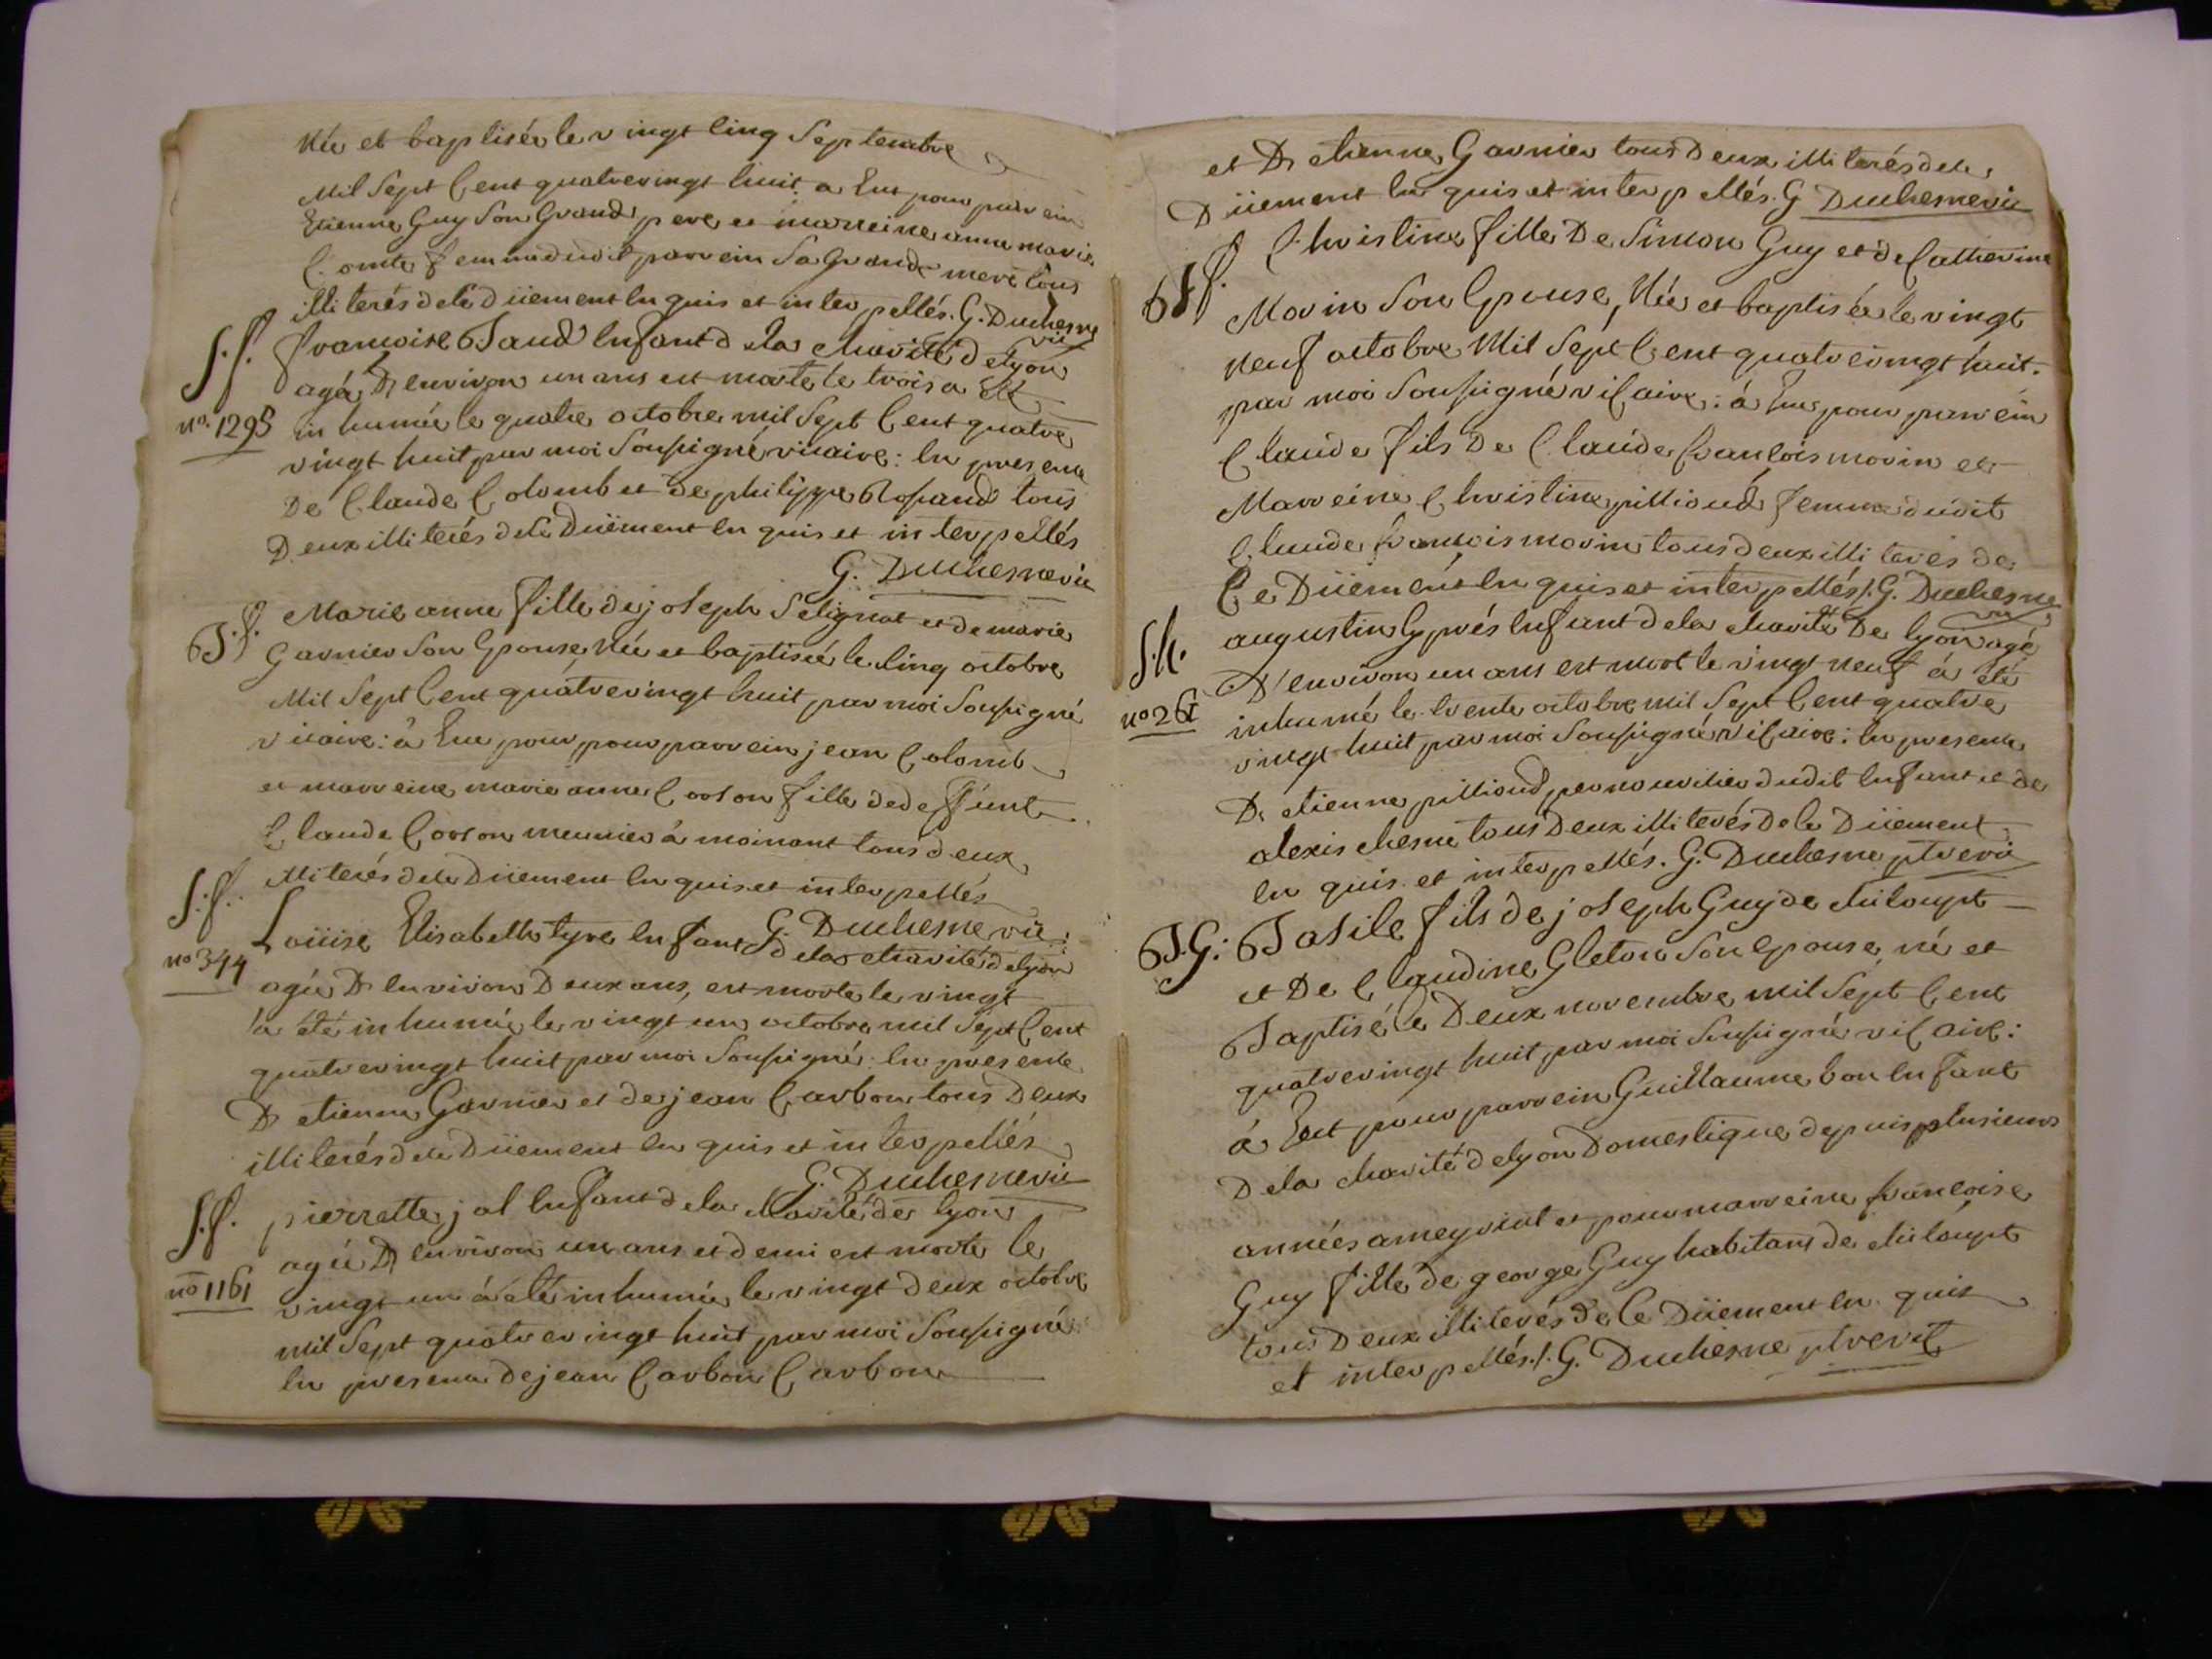 Née et baptisée le vingt Cinq Septembre
Mil Sept Cent quatrevingt huit a Eut pour parrein
Etienne Guy Son Grand pere et marreine anne marie
Comte femme dudit parrein Sa Grande mere tous
illiterés de Ce Düement Enquis et interpellés. G. Duchesne
vic
S. f. francoise Baud Enfant de la charité de lyon
agée D'environ un ans est morte le trois a Eté
no. 1295 inhumée le quatre octobre mil Sept Cent quatre
vingt huit par moi Soussigné vicaire: En presence
De Claude Colomb et de philippe Rosand tous
Deux illiterés de Ce Düement Enquis et interpellés
G. Duchesne vic
B. f. Marie anne fille de joseph Selignat et de marie
Garnier Son Epouse Née et baptisée le Cinq octobre
Mil Sept Cent quatrevingt huit par moi Soussigné
vicaire: à Eue pour pour parrein jean Colomb
et marreine marie anne Corton fille de deffunt
Claude Corton meunier à moinant tous deux
illiterés de Ce Düement Enquis et interpellés
G. Duchesne vic:
S. f. Loüise Elisabeth tyre Enfant de la charité de lyon
no 344 agée D'Environ Deux ans, est morte le vingt
a été inhumée le vingt un octobre mil Sept Cent
quatrevingt huit par moi Soussigné: En presence
D'etienne Garnier et de jean Carbon tous Deux
illiterés de Ce Düement Enquis et interpellés
G. Duchesne vic
S. f. pierrette jal Enfant de la charité de lyon
agée D'Environ un ans et demi est morte le
no 1161 vingt un a été inhumée le vingt deux octobre
mil Sept quatrevingt huit par moi Soussigné
En presence de jean Carbon Carbon
et D'etienne Garnier tous Deux illiterés de Ce
Düement Enquis et interpellés. G Duchesne vic
B. f. Christine fille De Simon Guy et de Catherine
Morin Son Epouse, Née et baptisée le vingt
neuf octobre Mil Sept Cent quatrevingt huit.
par moi Soussigné vicaire: à Eue pour parrein
Claude fils De Claude francois morin et
Marreine Christine pillioud femme dudit
Claude francois morin tous deux illiterés de
Ce Düement Enquis et interpellés /. G. Duchesne
vic
S. h. augustin Cyprés Enfant de la charité De lyon agé
D'environ un ans est mort le vingt neuf à été
no 261 inhumé le trente octobre mil Sept Cent quatre
vingt huit par moi Soussigné vicaire: En presence
D'etienne pillioud pere nouricier dudit Enfant et de
alexis chesne tous Deux illiterés de Ce Düement
Enquis et interpellés. G. Duchesne ptre vic
B. G: Basile fils de joseph Guy de chiloupt
et De Claudine Gleton Son Epouse né et
Baptisé le Deux novembre mil Sept Cent
quatrevingt huit par moi Soussigné vicaire:
à Eut pour parrein Guillaume bon Enfant
De la charité de lyon Domestique depuis plusieurs
années ameyriat et pour marreine francoise
Guy fille de george Guy habitant de chiloupt
tous Deux illiterés de Ce Düement Enquis
et interpellés./. G. Duchesne ptre vic